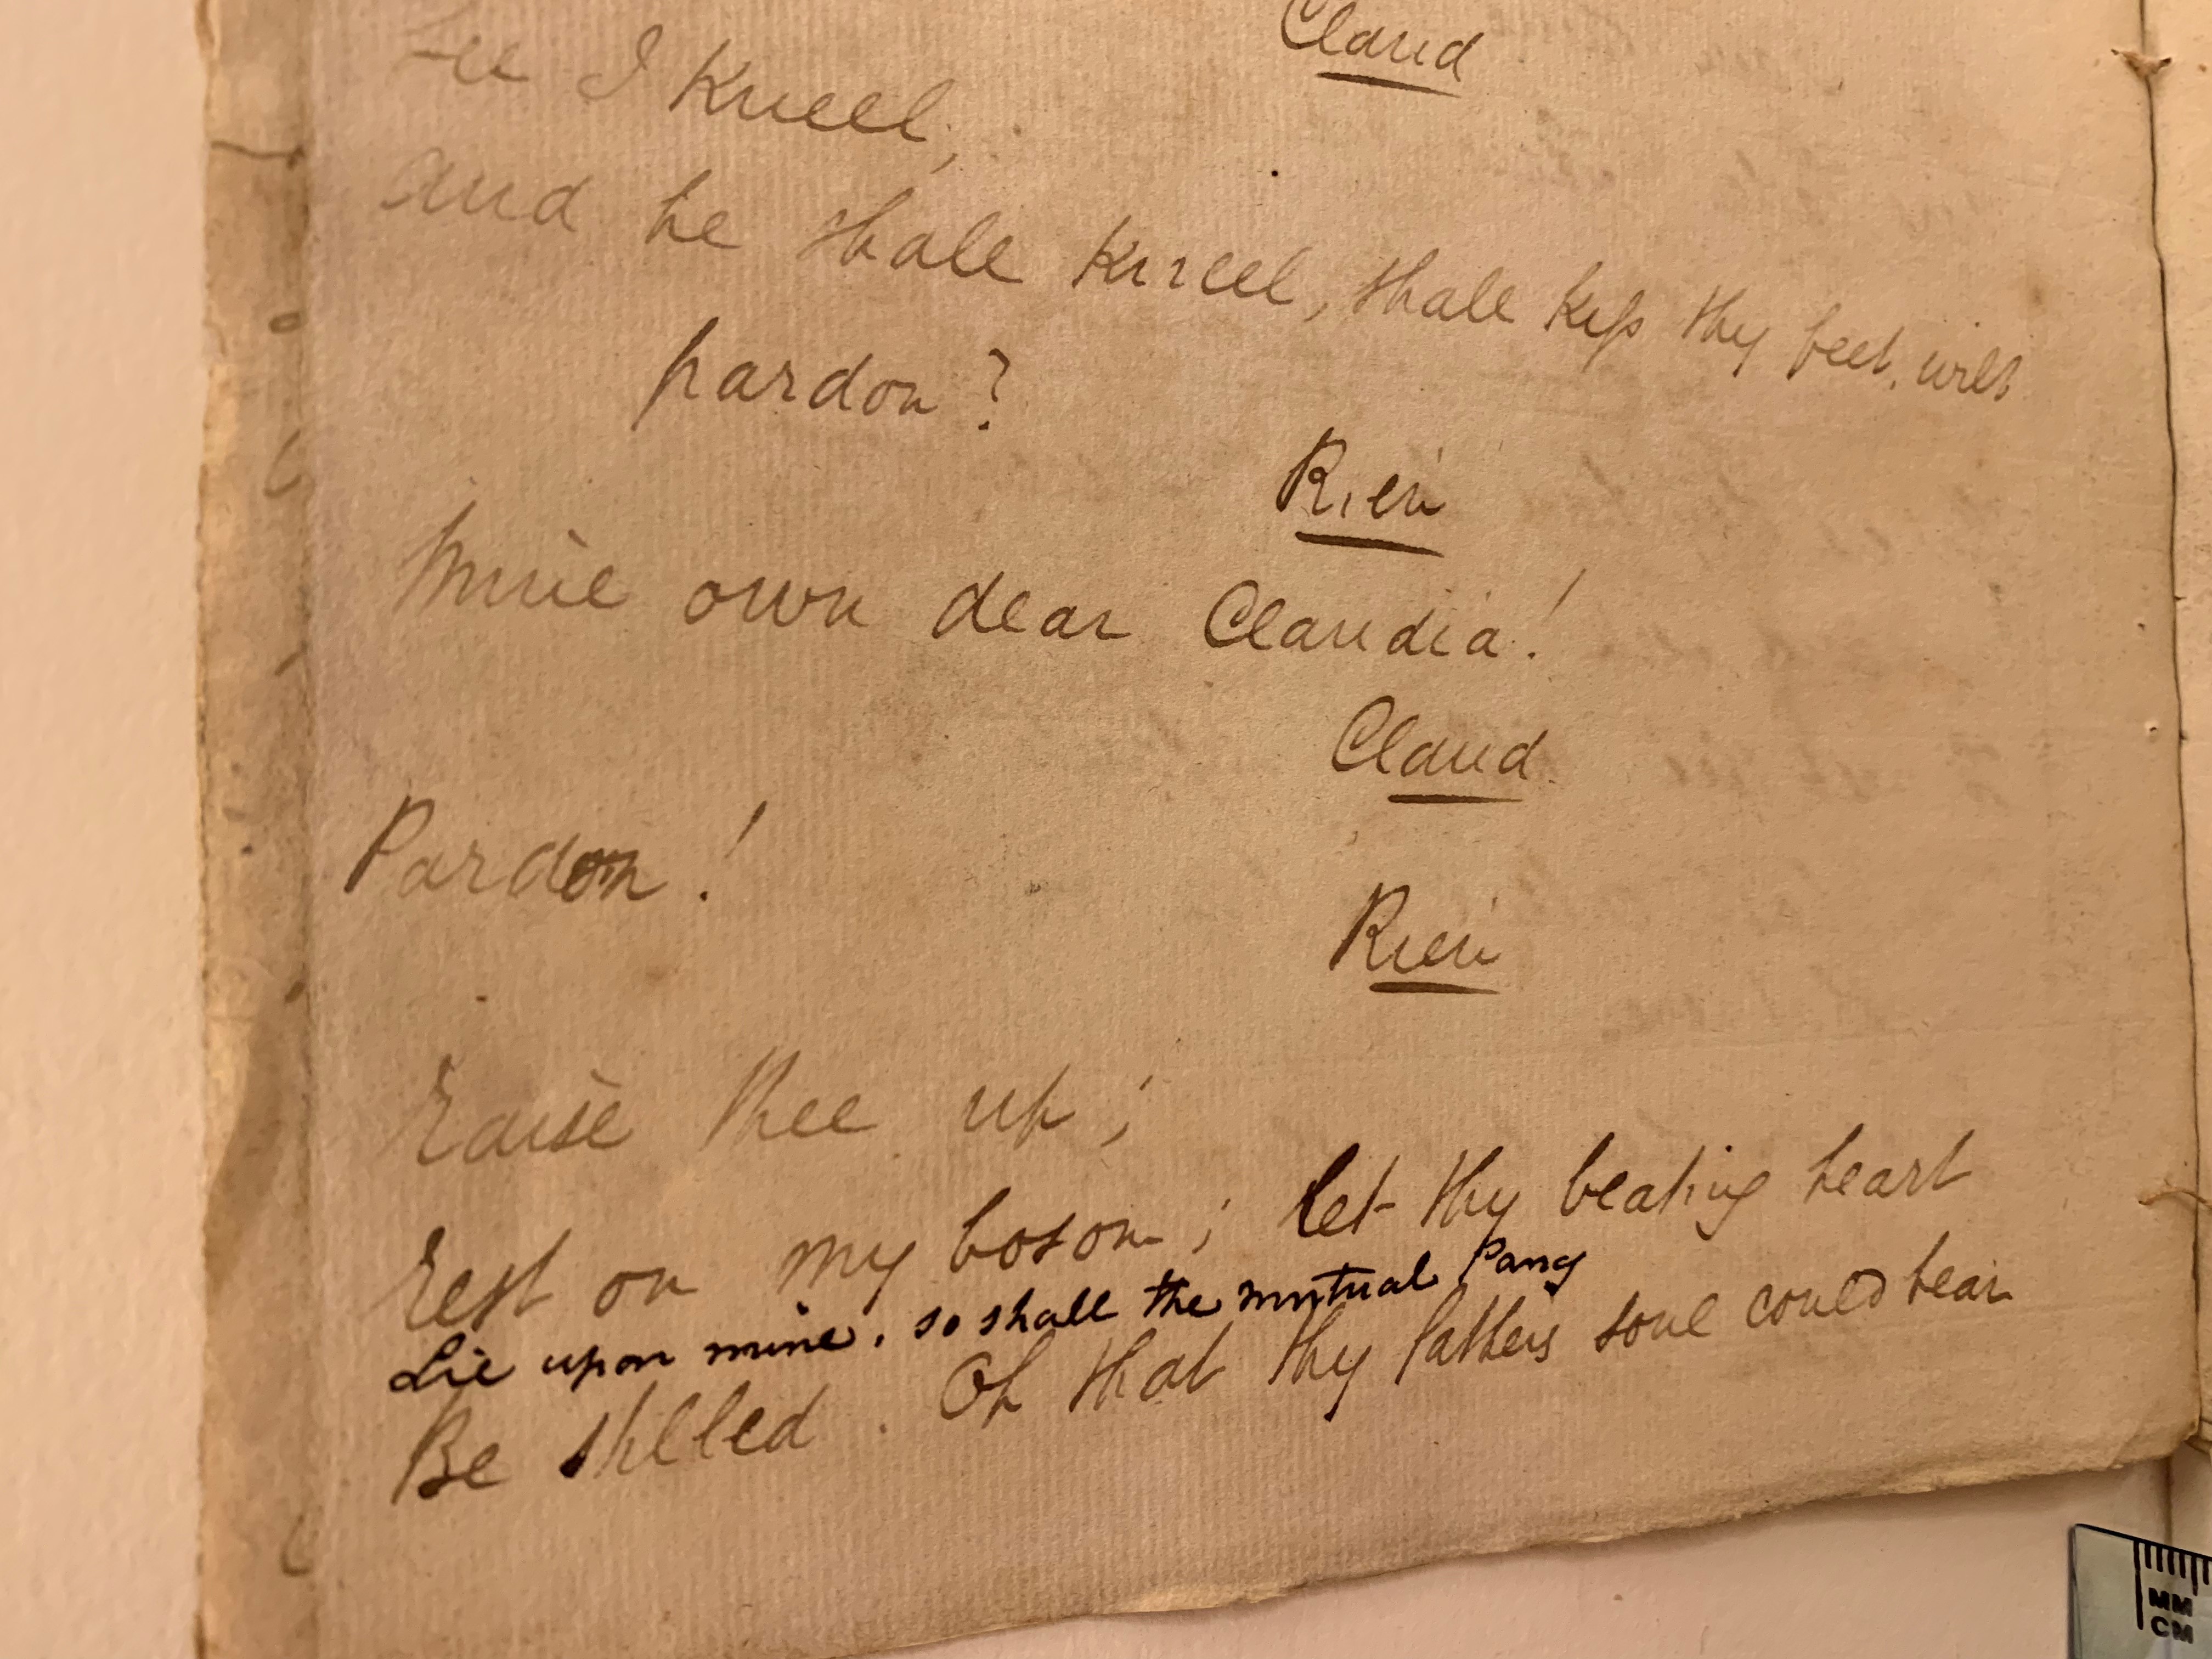 Claud
See I kneel,
And he shall kneel, shall kiss thy feet, wilt
pardon?
Rien
Mine own dear Claudia!
Claud
Pardon!
Rien
Raise thee up;
Rest on my bosom; let thy beating heart
Lie upon mine. so shall the mutual Pang
Be stilled. Oh that thy fathers soul could bear
MM
CM